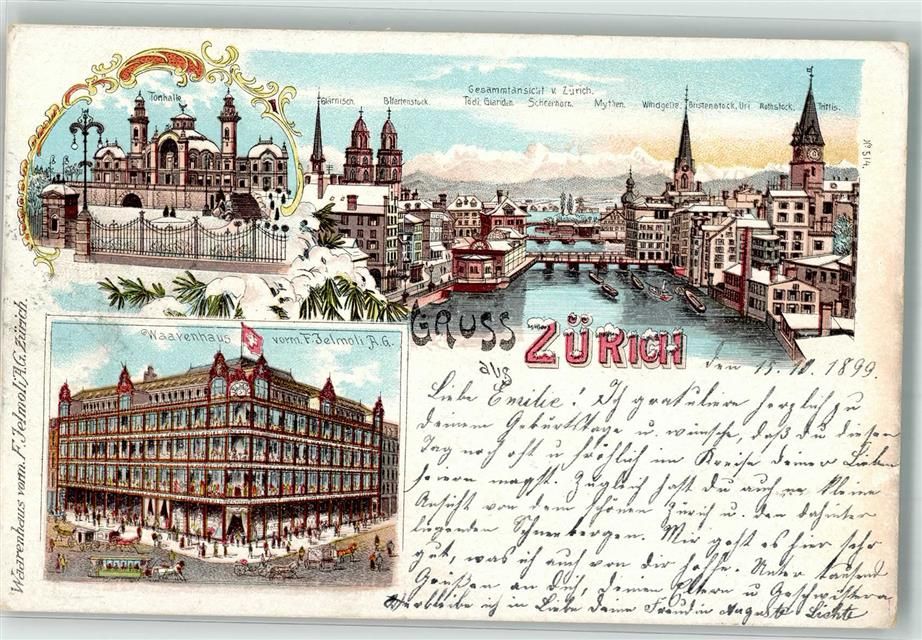 Tonhalle
Gesammtansicht v. Zürich.
Glärnisch. Bifertenstock. Tödi. Clariden. Scheerhorn. Mythen. Windgelle. Bristenstock, Uri Rothstock. Titlis.
No 514.
Gruss
aus
Zürich
Waarenhaus vorm. F. Jelmoli A.G.
Waarenhaus vorm. F. Jelmoli A.G. Zürich.
den 15.10.1899.
Liebe Emilie! Ich gratuliere herzlich zu
deinem Geburtstage u. wünsche, daß du diesen
Tag noch oft u. fröhlich im Kreise deiner Lieben
feiern magst. Zugleich hast du auch eine kleine
Ansicht von dem schönen Zürich u. den dahinter
liegenden Schneebergen. Mir geht es hier sehr
gut, was ich auch von dir hoffe. Unter tausend
Grüßen an dich, deinen Eltern u. Geschwistern
verbleibe ich in Liebe deine Freundin Auguste